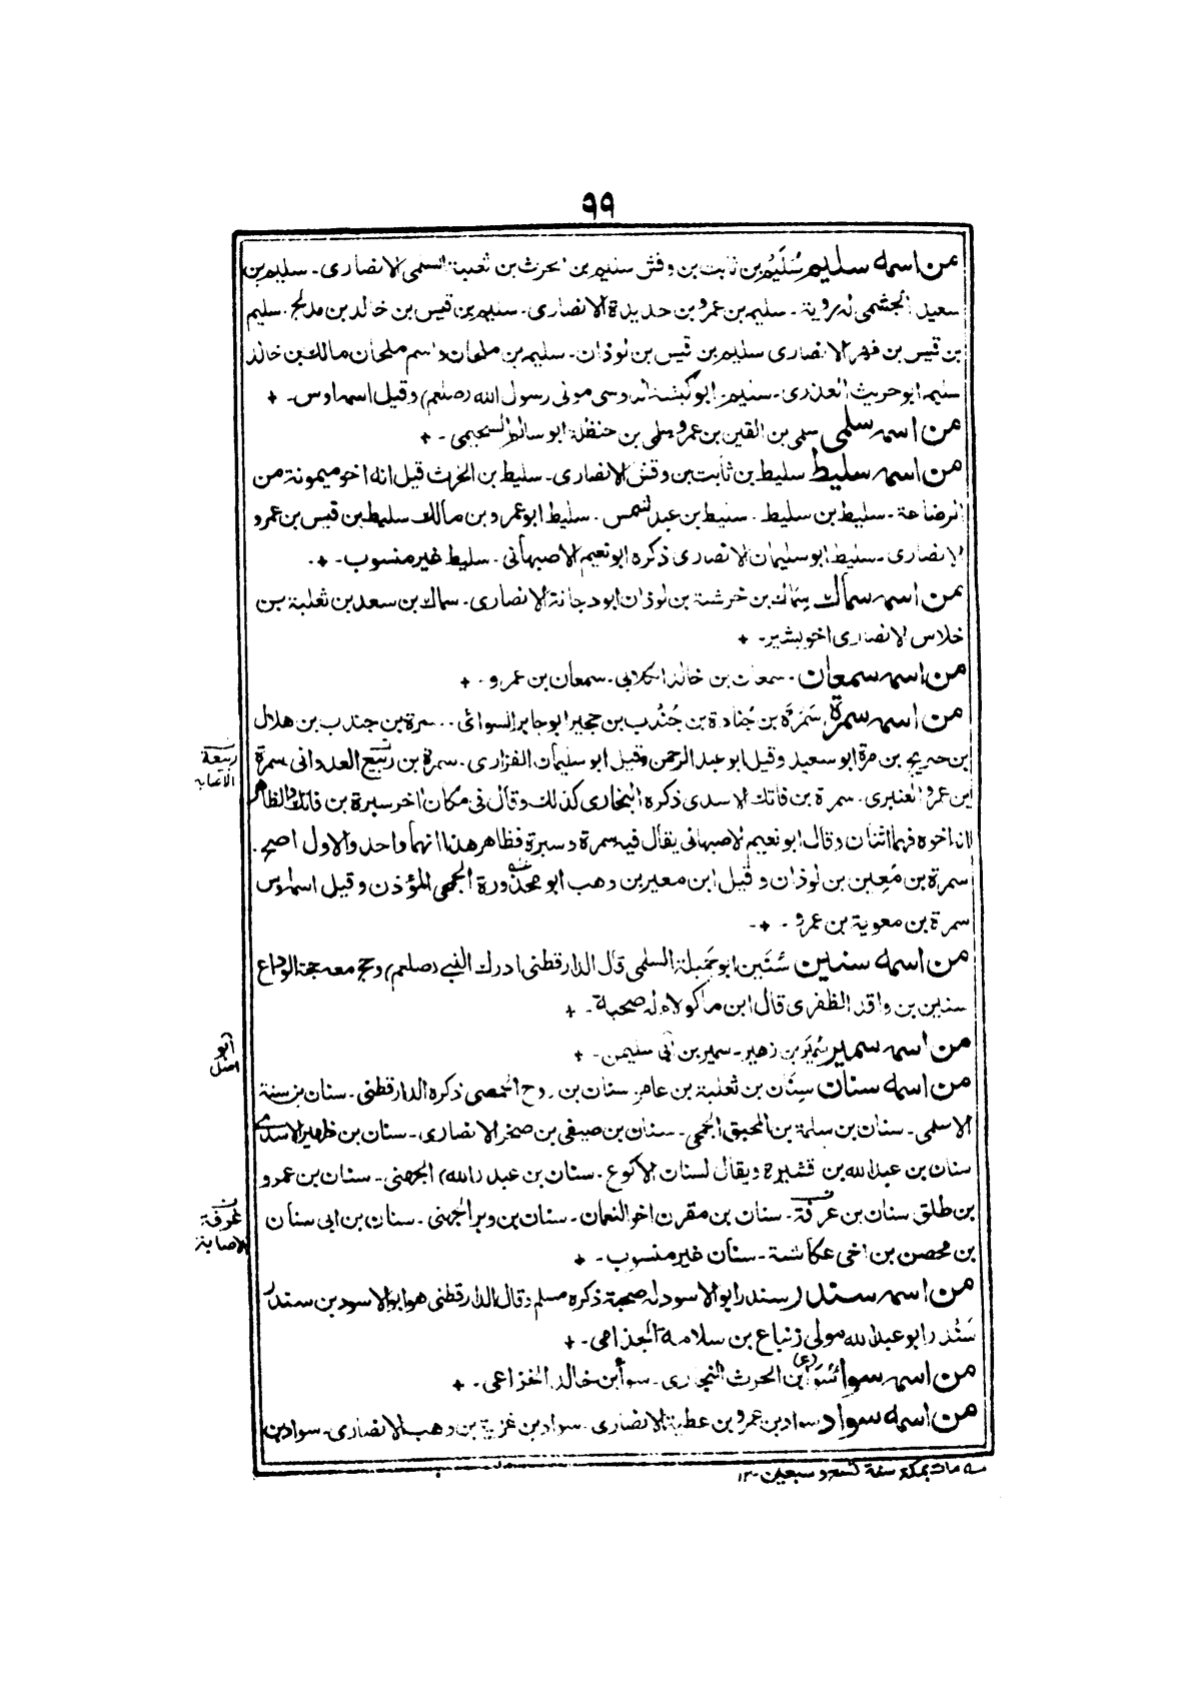 ٩٩
من اسمه سليم سُلَيم بن ثابت بن وقش سليم بن الحرث بن ثعلبة السلمى الانصارى۔ سليم بن
سعيد الجشمى له روية۔ سليم بن عمرو بن حديدة الانصارى۔ سليم بن قيس بن خالد بن مدلج۔ سليم
بن قيس بن فهر الانصارى سليم بن قيس بن لوذان۔ سليم بن ملحان واسم ملحان مالك بن خالد
سليم ابو حريث العذرى۔ سليم ابو كبشة الدوسى مولى رسول الله (صلعم) وقيل اسمه اوس۔ +
من اسمه سلمى سلمى بن القين بن عمرو سلمى بن حنظلة ابو سالم السحيمى۔ +
من اسمه سليط سليط بن ثابت بن وقش الانصارى۔ سليط بن الحرث قيل انه اخو ميمونة من
الرضاعة۔ سليط بن سليط۔ سليط بن عبد شمس۔ سليط ابو عمرو بن مالك سليط بن قيس بن عمرو
الانصارى۔ سليط ابو سليمان الانصارى ذكره ابو نعيم الاصبهانى۔ سليط غير منسوب۔ +
من اسمه سماك سِمَاك بن خرشة بن لوذان ابو دجانة الانصارى۔ سماك بن سعد بن ثعلبة بن
خلاس الانصارى اخو بشير۔ +
من اسمه سمعان۔ سمعان بن خالد الكلابى۔ سمعان بن عمرو۔ +
من اسمه سمرة سَمُرَة بن جُنادة بن جُندُب بن حجير ابو جابر السوائى۔ سمرة بن جندب بن هلال
بن حريج بن مرة ابو سعيد وقيل ابو عبد الرحمن وقيل ابو سليمان الفزارى۔ سمرة بن ربيع العدوانى سمرة
ابن عمرو العنبرى۔ سمرة بن فاتك الاسدى ذكره البخارى كذلك وقال فى مكان اخر سبرة بن فاتك والظاهر
انه اخوه فهما اثنان وقال ابو نعيم الاصبهانى يقال فيه سمرة وسبرة فظاهر هذا انهما واحد والاول اصح۔
سمرة بن مَعِين بن لوذان وقيل ابن معير بن وهب ابو محذورة الجمحى المؤذن وقيل اسمه اوس
سمرة بن معوية بن عمرو۔ +
من اسمه سنين سُنَين ابو جميلة السلمى قال الدارقطنى ادرك النبى (صلعم) وحج معه حجة الوداع
سنين بن واقد الظفرى قال ابن ماكولا له صحبة۔ +
من اسمه سمير سُمَير بن زهير۔ سمير بن ابى سليمن۔ +
من اسمه سنان سِنَان بن ثعلبة بن عامر سنان بن روح الحمصى ذكره الدارقطنى۔ سنان بن سنة
الاسلمى۔ سنان بن سلمة بن المحبق الجمحى۔ سنان بن صيفى بن صخر الانصارى۔ سنان بن ظهير الاسدى
سنان بن عبد الله بن قشيرة ويقال لسنان الاكوع۔ سنان بن عبد (الله) الجهنى۔ سنان بن عمرو
بن طلق سنان بن عرفة۔ سنان بن مقرن اخو النعمان۔ سنان بن وبر الجهنى۔ سنان بن ابى سنان
بن محصن بن اخى عكاشة۔ سنان غير منسوب۔ +
من اسمه سندر سندر ابو الاسود له صحبة ذكره مسلم وقال الدارقطنى هو ابو الاسود بن سندر
سَنْدر ابو عبد الله مولى زنباع بن سلامة الجذامى۔ +
من اسمه سواء سَوَاء (ع) بن الحرث النجارى۔ سواء بن خالد الخزاعى۔ +
من اسمه سواد سواد بن عمرو بن عطية الانصارى۔ سواد بن غزية بن وهب الانصارى۔ سواد بن
ربيعة
ابو
اصل
ن
غرفة
الاصابة
سه مات بمكة سنة تسع و سبعين۔ ١٢